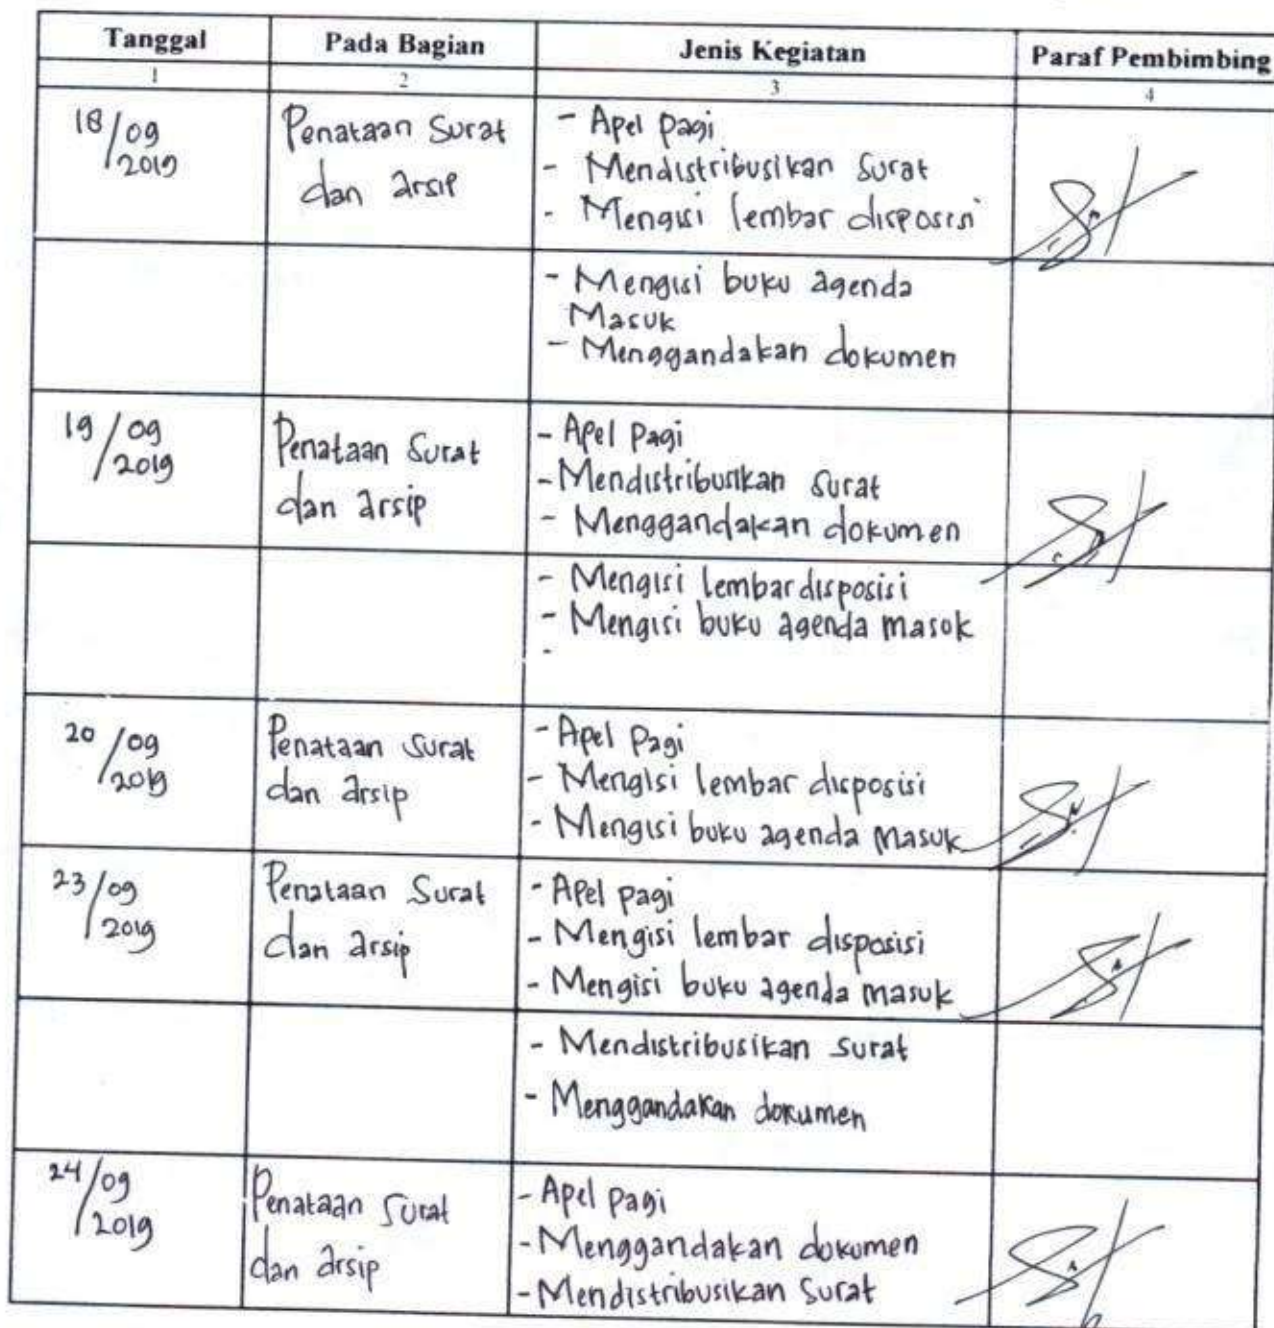 Tanggal Pada Bagian Jenis Kegiatan Paraf Pembimbing
1 2 3 4
18/09 2019
Penataan Surat
dan arsip
- Apel Pagi
- Mendistribusikan Surat
- Mengisi lembar disposisi
- Mengisi buku agenda
Masuk
- Menggandakan dokumen
19/09 2019
Penataan Surat
dan arsip
- Apel Pagi
- Mendistribusikan Surat
- Menggandakan dokumen
- Mengisi lembar disposisi
- Mengisi buku agenda masuk
-
20/09 2019
Penataan Surat
dan arsip
- Apel Pagi
- Mengisi lembar disposisi
- Mengisi buku agenda Masuk
23/09 2019
Penataan Surat
dan arsip
- Apel pagi
- Mengisi lembar disposisi
- Mengisi buku agenda masuk
- Mendistribusikan Surat
- Menggandakan dokumen
24/09 2019
Penataan Surat
dan arsip
- Apel pagi
- Menggandakan dokumen
- Mendistribusikan Surat